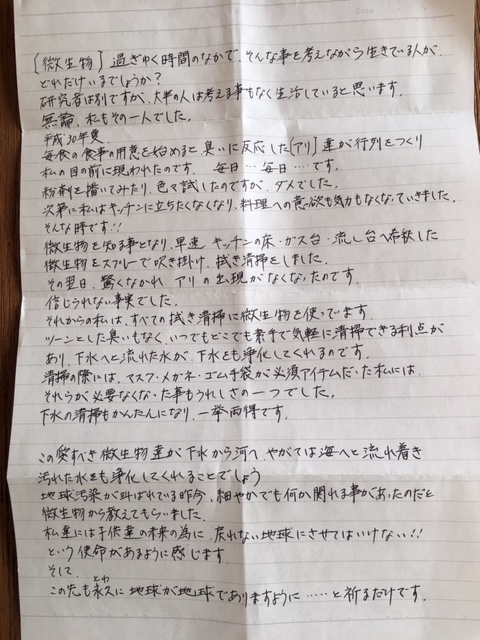 〔微生物〕 過ぎゆく時間のなかで、そんな事を考えながら生きている人が、
どれだけいるでしょうか?
研究者は別ですが、大半の人は考える事もなく生活していると思います。
無論、私もその一人でした。
平成30年夏、
毎食の食事の用意を始めると臭いに反応した〔アリ〕達が行列をつくり
私の目の前に現われたのです。 毎日…毎日…です。
粉剤を撒いてみたり、色々試したのですが、ダメでした。
次第に私はキッチンに立ちたくなくなり、料理への意欲も気力もなくなっていきました。
そんな時です!!
微生物を知る事となり、早速 キッチンの床・ガス台・流し台へ希釈した
微生物をスプレーで吹き掛け、拭き清掃をしました。
その翌日、驚くなかれ アリの出現がなくなったのです。
信じられない事実でした。
それからの私は、すべての拭き清掃に微生物を使っています
ツーンとした臭いもなく、いつでもどこでも素手で気軽に清掃できる利点が
あり、下水へと流れた水が、下水をも浄化してくれるのです。
清掃の際には、マスク・メガネ・ゴム手袋が必須アイテムだった私には、
それらが必要なくなった事もうれしさの一つでした。
下水の清掃もかんたんになり、一挙両得です。
この愛すべき微生物達が下水から河へ、やがては海へと流れ着き
汚れた水をも浄化してくれることでしょう
地球汚染が叫ばれている昨今、細やかでも何か関れる事があったのだと
微生物から教えてもらいました。
私達には子供達の未来の為に、戻れない地球にさせてはいけない!!
という使命があるように感じます。
そして、
この先も永久(とわ)に地球が地球でありますように……と祈るだけです。